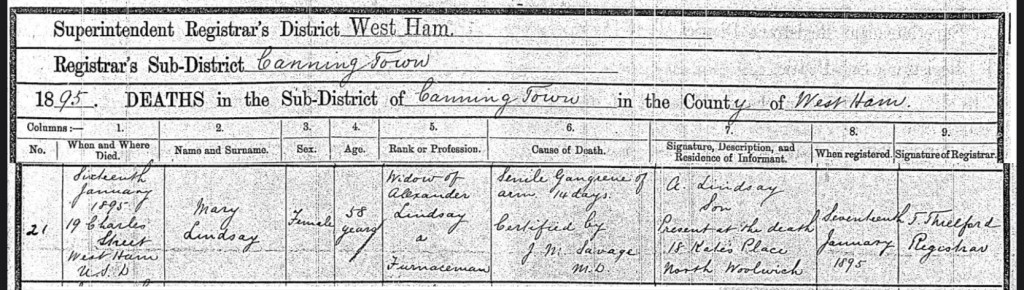 Superintendent Registrar's District West Ham.
Registrar's Sub-District Canning Town
1895. DEATHS in the Sub-District of Canning Town in the County of West Ham.
Columns:— 1. 2. 3. 4. 5. 6. 7. 8. 9.
No. When and Where Died. Name and Surname. Sex. Age. Rank or Profession. Cause of Death. Signature, Description, and Residence of Informant. When registered. Signature of Registrar.
21
Sixteenth
January
1895
19 Charles
Street
West Ham
U.S.D
Mary
Lindsay
Female
58
years
Widow of
Alexander
Lindsay
a
Furnaceman
Senile Gangrene of
arm 14 days.
Certified by
J. M. Savage
M.D.
A. Lindsay
Son
Present at the death
18 Kate's Place
North Woolwich
Seventeenth
January
1895
T. Threlford
Registrar